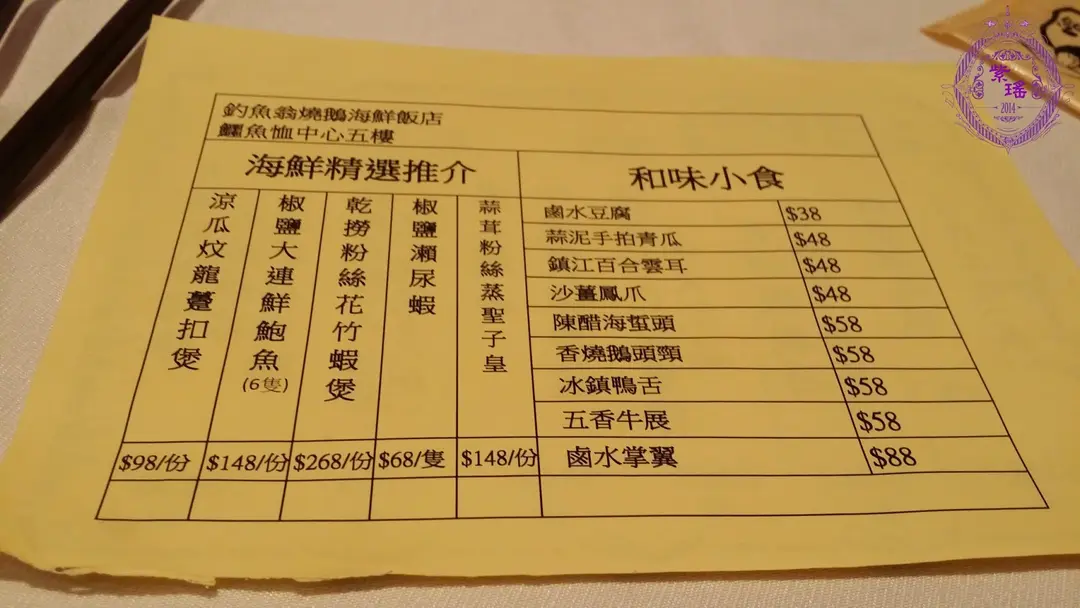 釣魚翁燒鵝海鮮飯店
鱷魚恤中心五樓
海鮮精選推介
涼瓜炆龍躉扣煲
$98/份
椒鹽大連鮮鮑魚
(6隻)
$148/份
乾撈粉絲花竹蝦煲
$268/份
椒鹽瀨尿蝦
$68/隻
蒜茸粉絲蒸聖子皇
$148/份
和味小食
鹵水豆腐 $38
蒜泥手拍青瓜 $48
鎮江百合雲耳 $48
沙薑鳳爪 $48
陳醋海蜇頭 $58
香燒鵝頭頸 $58
冰鎮鴨舌 $58
五香牛展 $58
鹵水掌翼 $88
紫瑤
2014